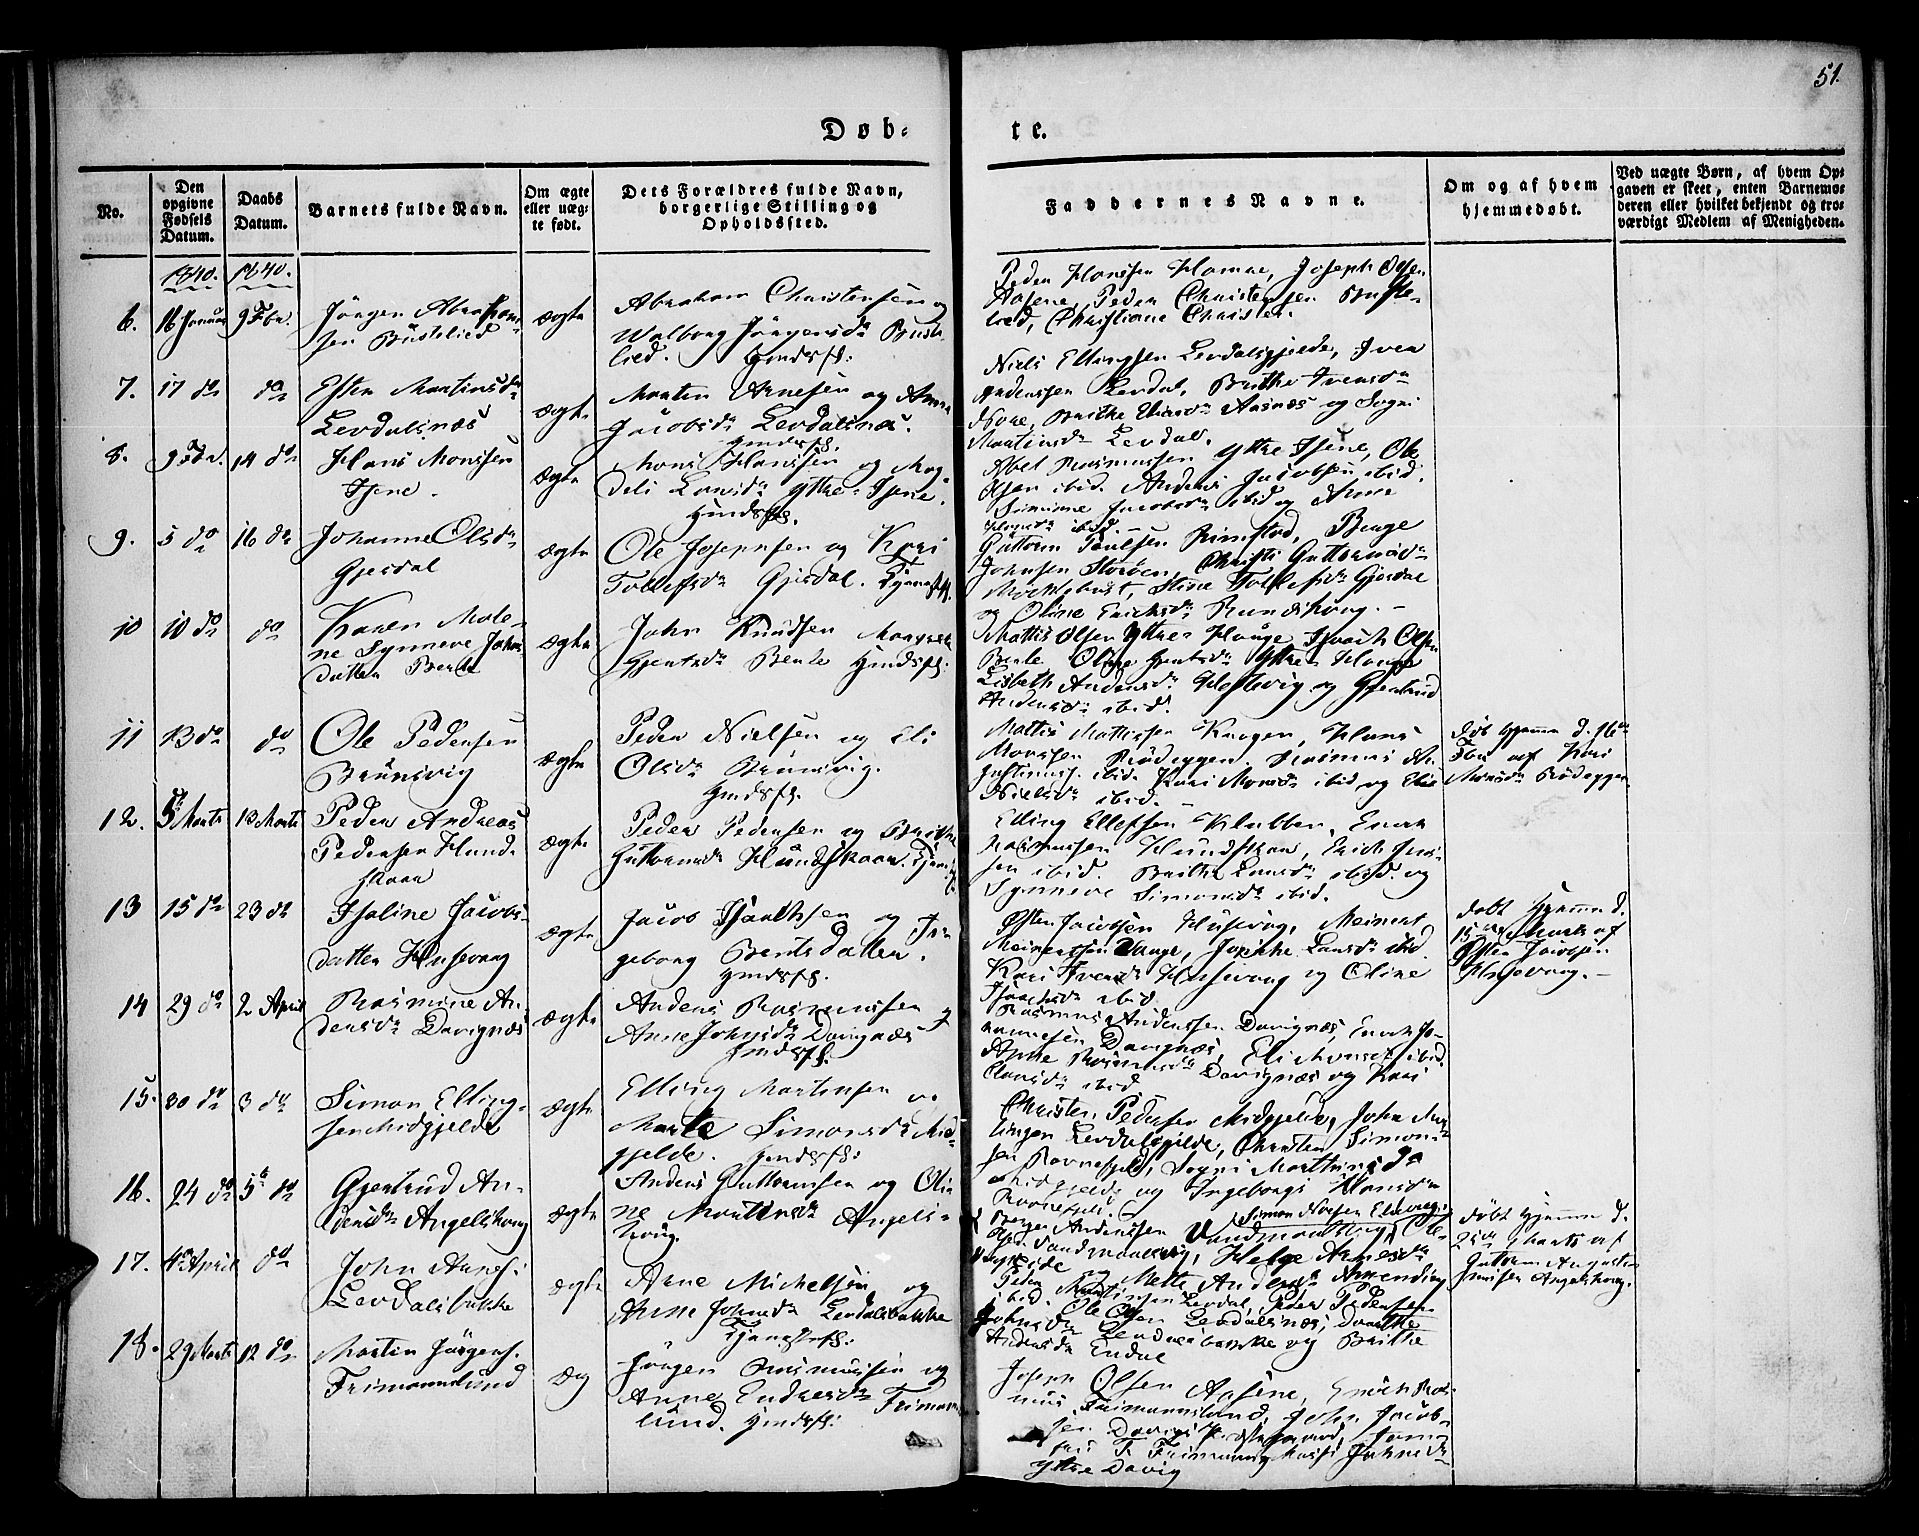 51.
Døb-
te.
No.
Den opgivne Fødsels Datum.
Daabs Datum.
Barnets fulde Navn.
Om ægte eller uægte født.
Dets Forældres fulde Navn,
borgerlige Stilling og
Opholdssted.
Faddernes Navne.
Om og af hvem
hjemmedøbt.
Ved uægte Børn, af hvem Op-
gaven er skeet, enten Barnemo-
deren eller hvilket bekjendt og tro-
værdigt Medlem af Menigheden.
1840. 1840.
6. 16 Januar 9 Febr. Jörgen Abraham-
sen Büskelied
ægte
Abraham Christensen og
Walborg Jörgensdr Busk-
lied. Gmdsfk:
Peder Hansen Hamre, Joseph Olsen
Aasene, Peder Christensen Buske-
lied, Christiane Christen.
7. 17 do do Esten Martinsdr
Levdalsnæs
ægte
Martin Arnesen og Anna
Jacobsdr Levdalsnæs.
Gmdsfk.
Niels Ellingsen Levdalsgjelde, Iver
Anderssen Levdal, Brithe Iversdr
ibid, Brithe Eliasdr Aasnæs og Sogni
Martinsdr Levdal.
8. 9 Febr. 14 do Hans Monsen
Isene.
ægte
Mons Hansen og Mag-
deli Larsdr Yttre-Isene.
Gmdsfk.
Abel Rasmussen Yttre Isene, Ole
Olsen ibid. Anders Jacobsen ibid.
Simine Jacobsdr ibid og Anne
Hansdr ibid.
9. 5 do 16 do Johanne Olsdr
Gjesdal
ægte
Ole Josephsen og Kari
Tollefsdr Gjesdal. Tjenestf.
Guttorm Poulsen Rimstad, Benge
Johnsen Storöen, Christi Guttormsdr
Mocklebust, Stine Tollefsdr Gjesdal
og Oline Erichsdr Rundskoug.
10 10 do do Karen Male-
ne Synneve Johns-
datter Bente
ægte
John Knudsen Margrete
Gjertsdr Bente Gmdsfk:
Mattis Olsen Yttre Houge, Isaack Olsen
Bente, Oline Gjertsdr Yttre Houge
Lisbeth Andersdr Hestevig og Gjertrud
Andersdr ibid.
11 13 do do Ole Pedersen
Brünsvig
ægte
Peder Nielsen og Eli
Olsdr Brünsvig.
Gmdsfk.
Mattis Mattissen Krogen, Hans
Monsen Rödeggen. Rasmus An-
ibid. Kari Monsdr ibid og Elie
Nielsdr ibid.
döb hjemme d. 16de
Febr af Kari
Monsdr Rödeggen
12. 5 Marts 13 Marts Peder Andreas
Pedersen Hund-
skaar
ægte
Peder Pedersen og Brithe
Guttormsdr Hundskaar. Tjenestf.
Elling Ellefsen Klubben, Enock
Rasmussen Hundskaar, Erich
sen ibid. Brithe Larsdr ibid. og
Synneve Simonsdr ibid.
13 15 do 23 do Isaline Jacobs-
datter Husevaag
ægte
Jacob Isaachsen og In-
geborg Berntsdatter.
Gmdsfk.
Östen Jacobsen Husevaag, Meinert
Meinertsen Vange, Jonikke Larsdr ibid.
Kari Iversdr Husevaag og Oline
Isaachsdr ibid.
döbt hjemme d.
15de Marts af
Östen Jacobsen
Husevaag.
14 29 do 2 April Rasmine An-
dersdr Davignæs
ægte
Anders Rasmussen og
Anne Johnsdr Davignæs
Gmdsfk.
Rasmus Anderssen Davignæs, Enock Jo-
hannesen Davignæs, Eli Monsdr ibid.
Anne Rasmusdr Davignæs og Kari
Hansdr ibid.
15. 30 do 3 do Simon Elling-
sen Midgjelde
ægte
Elling Martinsen og
Marte Simonsdr Mid-
gjelde. Gmdsfk:
Christen Pedersen Midgjelde, John
lingsen Levdalsgjelde, Christen Simon-
sen Ravnefjeld, Sogni Martinsdr
Midgjelde og Ingeborg Hansdr
Ravnefjeld.
16. 24 do 5te do Gjertrud An-
dersdr Angelshoug
ægte
Anders Guttormsen og Oli-
ne Martinsdr Angels-
houg.
Simon Noesen
Anderssen Vandmandsvig, Ole
Vandmandsvig, Helge Arnesdr
og Mette Andersdr
ibid.
döbt hjemme d.
25de Marts af
Guttorm Augustin
Angelshoug.
17. 4de April do John Arnes:
Levdalsbakke
ægte
Arne Michelsen og
Anne Johnsdr Levdalsbakke
Tjenestfk:
Peder Martinsen Levdal, Peder Pedersen
Ole Olsen Levdalsnæs, Dorthe
Johnsdr Levdalsbakke og Brithe
Andersdr Endal
18. 29 Marts 12 do Martin Jörgens.
Frimannslund
æg
Jörgen Rasmussen og
Anne Endresdr Frimans-
lund. Gmdsfk:
Joseph Olsen Aasene, Enock Ras-
mus Frimannslund, John Jacob-
sen Davig
Johnsdr
Yttre Davig